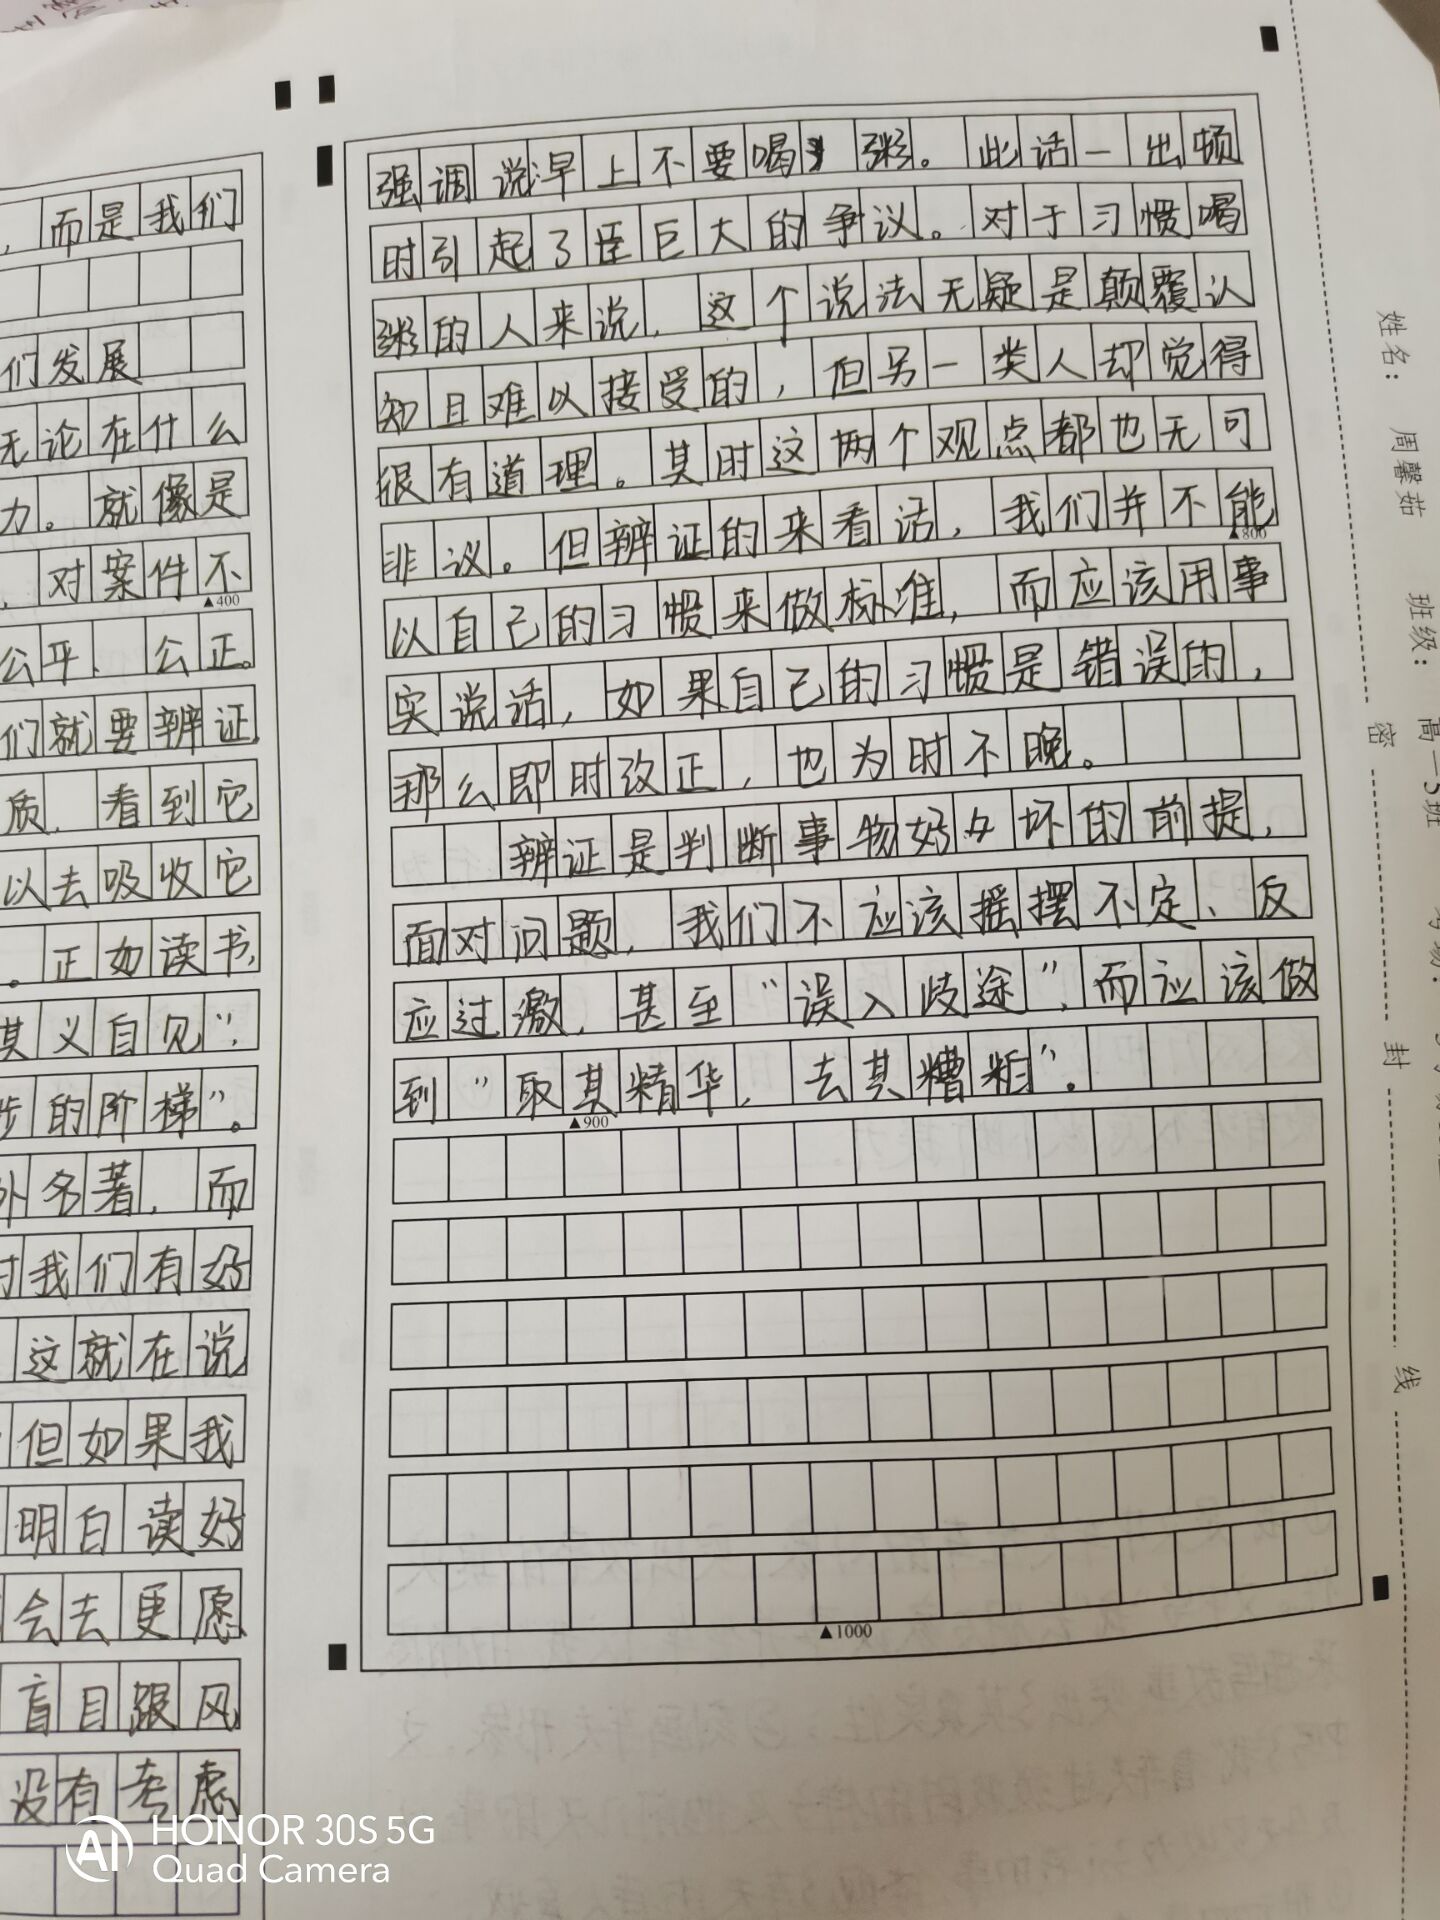 ，而是我们
们发展
无论在什么
力。就像是
，对案件不
▲400
公平、公正。
们就要辨证
质，看到它
以去吸收它
。正如读书，
其义自见"，
步的阶梯"。
外名著，而
对我们有好
这就在说
但如果我
明白读好
会去更愿
盲目跟风
没有考虑
强调说早上不要喝粥。此话一出顿
时引起了巨大的争议。对于习惯喝
粥的人来说，这个说法无疑是颠覆认
知且难以接受的，但另一类人却觉得
很有道理。其时这两个观点都也无可
非议。但辨证的来看话，我们并不能
▲800
以自己的习惯来做标准，而应该用事
实说话，如果自己的习惯是错误的，
那么即时改正，也为时不晚。
辨证是判断事物好与坏的前提，
面对问题，我们不应该摇摆不定、反
应过激，甚至"误入歧途"，而应该做
到"取其精华，去其糟粕"。
▲900
▲1000
姓名：周馨茹
班级：高一5班
考场：
密
封
线
HONOR 30S 5G
Quad Camera
AI